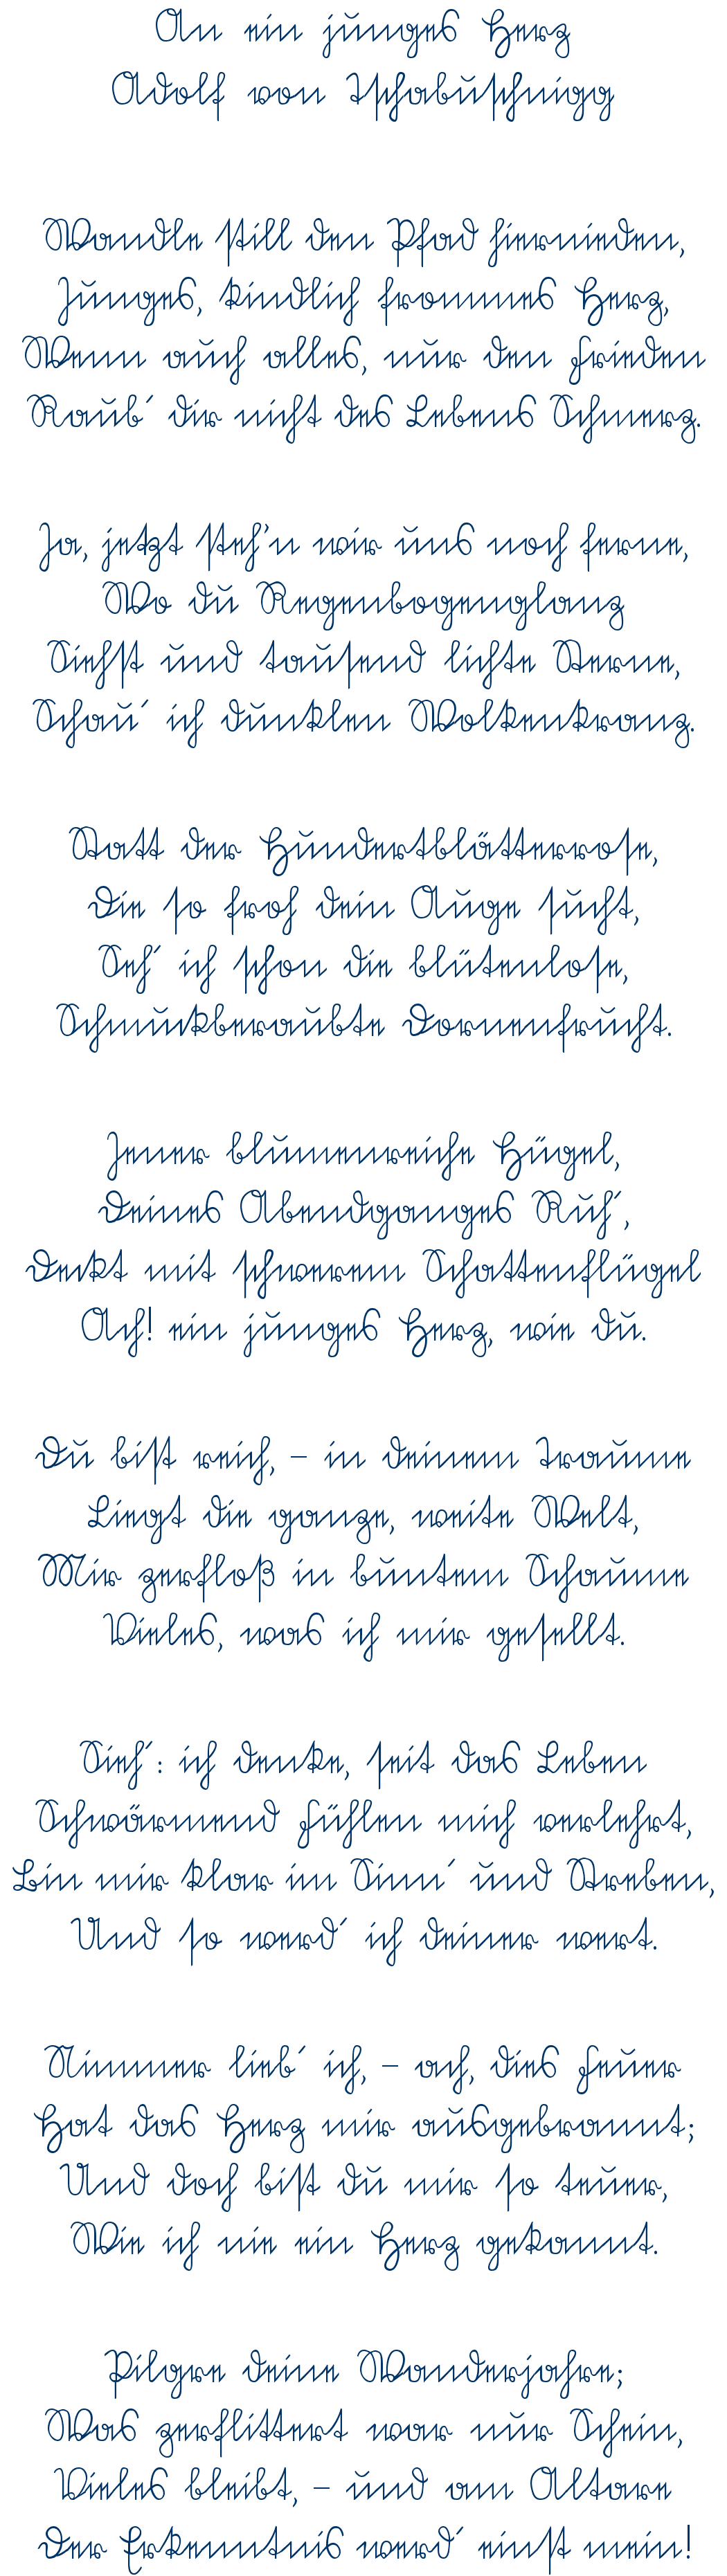 An ein junges Herz
Adolf von Tschabuschnigg
Wandle still den Pfad hiernieden,
Junges, kindlich frommes Herz,
Wenn auch alles, nur den Frieden
Raub´ dir nicht des Lebens Schmerz.
Ja, jetzt steh'n wir uns noch ferne,
Wo du Regenbogenglanz
Siehst und tausend lichte Sterne,
Schau´ ich dunklen Wolkenkranz.
Statt der Hundertblätterrose,
Die so froh dein Auge sucht,
Seh´ ich schon die blütenlose,
Schmuckberaubte Dornenfrucht.
Jener blumenreiche Hügel,
Deines Abendganges Ruh´,
Deckt mit schwerem Schattenflügel
Ach! ein junges Herz, wie du.
Du bist reich, – in deinem Traume
Liegt die ganze, weite Welt,
Mir zerfloß in buntem Schaume
Vieles, was ich mir gesellt.
Sieh´: ich denke, seit das Leben
Schwärmend Fühlen mich verlehrt,
Bin mir klar im Sinn´ und Streben,
Und so werd´ ich deiner wert.
Nimmer lieb´ ich, – ach, dies Feuer
Hat das Herz mir ausgebrannt;
Und doch bist du mir so teuer,
Wie ich nie ein Herz gekannt.
Pilgre deine Wanderjahre;
Was zerflittert war nur Schein,
Vieles bleibt, – und am Altare
Der Erkenntnis werd´ einst mein!